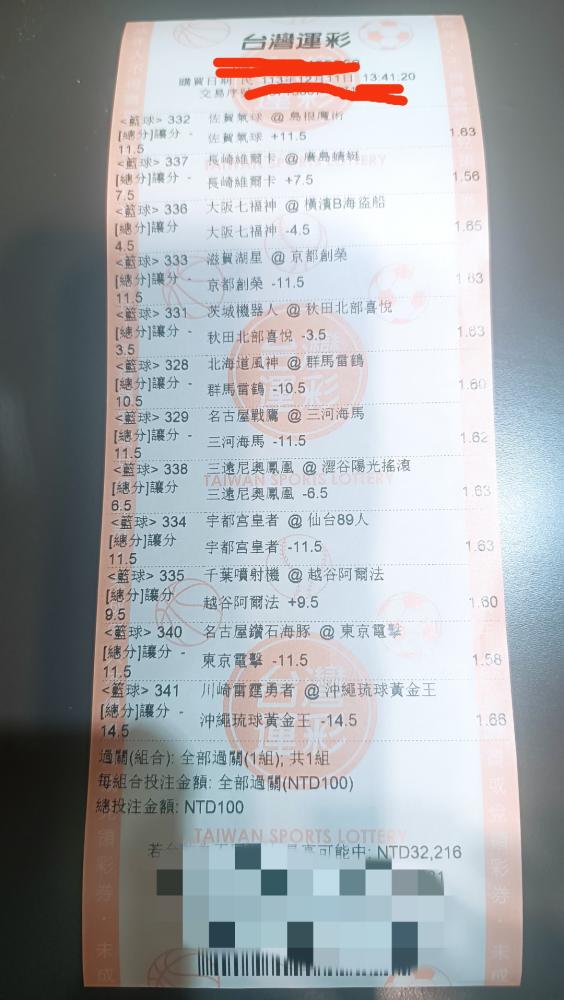 台灣運彩
購買日期 民 113年12月11日 13:41:20
交易序號
<籃球> 332 佐賀氣球 @ 島根魔術
[總分]讓分 - 11.5 佐賀氣球 +11.5 1.63
<籃球> 337 長崎維爾卡 @ 廣島蜻蜓
[總分]讓分 - 7.5 長崎維爾卡 +7.5 1.56
<籃球> 336 大阪七福神 @ 橫濱B海盜船
[總分]讓分 4.5 大阪七福神 -4.5 1.65
<籃球> 333 滋賀湖星 @ 京都創榮
[總分]讓分 - 11.5 京都創榮 -11.5 1.63
<籃球> 331 茨城機器人 @ 秋田北部喜悅
[總分]讓分 - 3.5 秋田北部喜悅 -3.5 1.63
<籃球> 328 北海道風神 @ 群馬雷鶴
[總分]讓分 - 10.5 群馬雷鶴 -10.5 1.60
<籃球> 329 名古屋戰鷹 @ 三河海馬
[總分]讓分 - 11.5 三河海馬 -11.5 1.62
<籃球> 338 三遠尼奧鳳凰 @ 澀谷陽光搖滾
[總分]讓分 6.5 三遠尼奧鳳凰 -6.5 1.63
<籃球> 334 宇都宮皇者 @ 仙台89人
[總分]讓分 11.5 宇都宮皇者 -11.5 1.63
<籃球> 335 千葉噴射機 @ 越谷阿爾法
[總分]讓分 9.5 越谷阿爾法 +9.5 1.60
<籃球> 340 名古屋鑽石海豚 @ 東京電擊
[總分]讓分 - 11.5 東京電擊 -11.5 1.58
<籃球> 341 川崎雷霆勇者 @ 沖繩琉球黃金王
[總分]讓分 - 14.5 沖繩琉球黃金王 -14.5 1.66
過關(組合): 全部過關(1組); 共1組
每組合投注金額: 全部過關(NTD100)
總投注金額: NTD100
TAIWAN SPORTS LOTTERY
若 最高可能中: NTD32,216